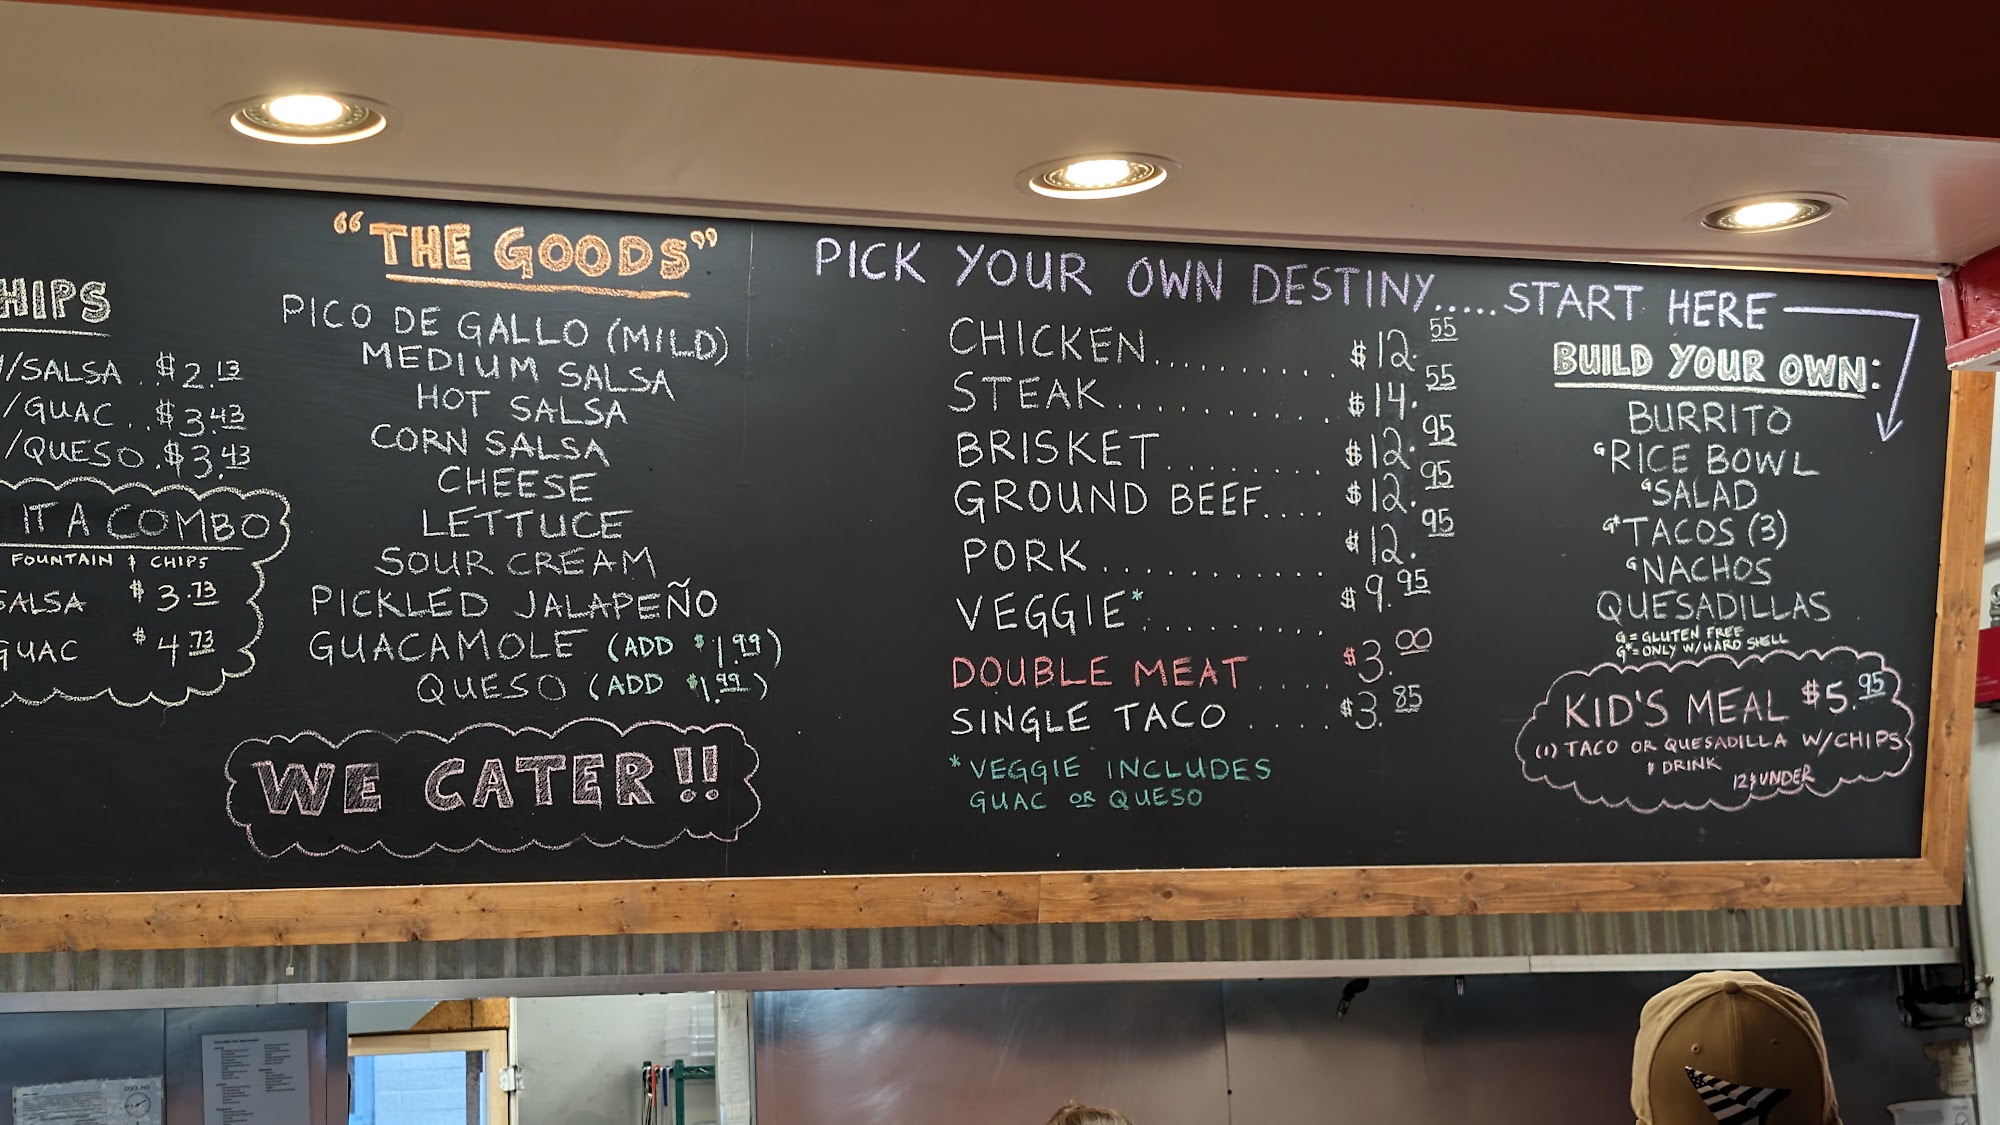 HIPS
/SALSA ..$2.13
/GUAC ..$3.43
/QUESO.$3.43
IT A COMBO
FOUNTAIN & CHIPS
SALSA $3.73
GUAC $4.73
"THE GOODS"
PICO DE GALLO (MILD)
MEDIUM SALSA
HOT SALSA
CORN SALSA
CHEESE
LETTUCE
SOUR CREAM
PICKLED JALAPEÑO
GUACAMOLE (ADD $1.99)
QUESO (ADD $1.99)
WE CATER!!
PICK YOUR OWN DESTINY.....START HERE
CHICKEN.......... $12.55
STEAK........... $14.55
BRISKET........ $12.95
GROUND BEEF.... $12.95
PORK........... $12.95
VEGGIE*......... $9.95
DOUBLE MEAT .... $3.00
SINGLE TACO ....$3.85
*VEGGIE INCLUDES
GUAC OR QUESO
BUILD YOUR OWN:
BURRITO
G RICE BOWL
G SALAD
G* TACOS (3)
G NACHOS
QUESADILLAS
G = GLUTEN FREE
G* = ONLY W/HARD SHELL
KID'S MEAL $5.95
(1) TACO OR QUESADILLA W/CHIPS
& DRINK
12 & UNDER